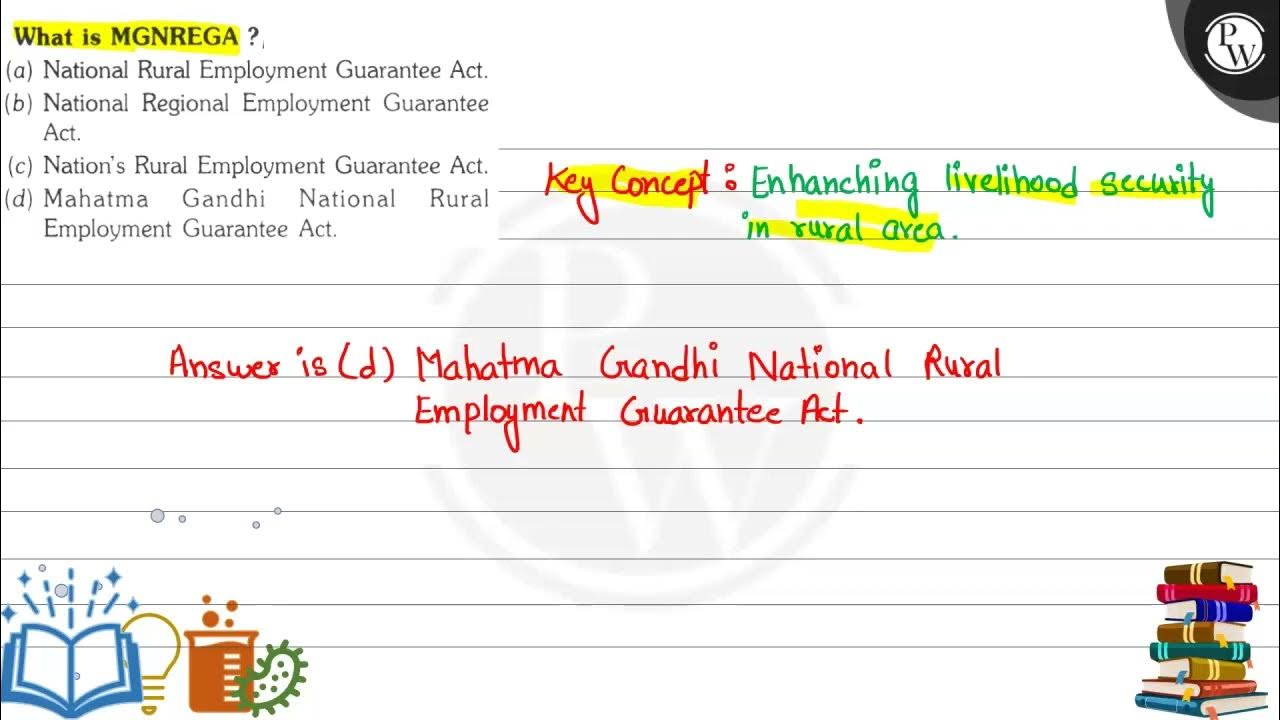 What is MGNREGA ?
(a) National Rural Employment Guarantee Act.
(b) National Regional Employment Guarantee
Act.
(c) Nation's Rural Employment Guarantee Act.
(d) Mahatma Gandhi National Rural
Employment Guarantee Act.
PW
Key Concept : Enhanching livelihood security
in rural area.
PW
Answer is (d) Mahatma Gandhi National Rural
Employment Guarantee Act.